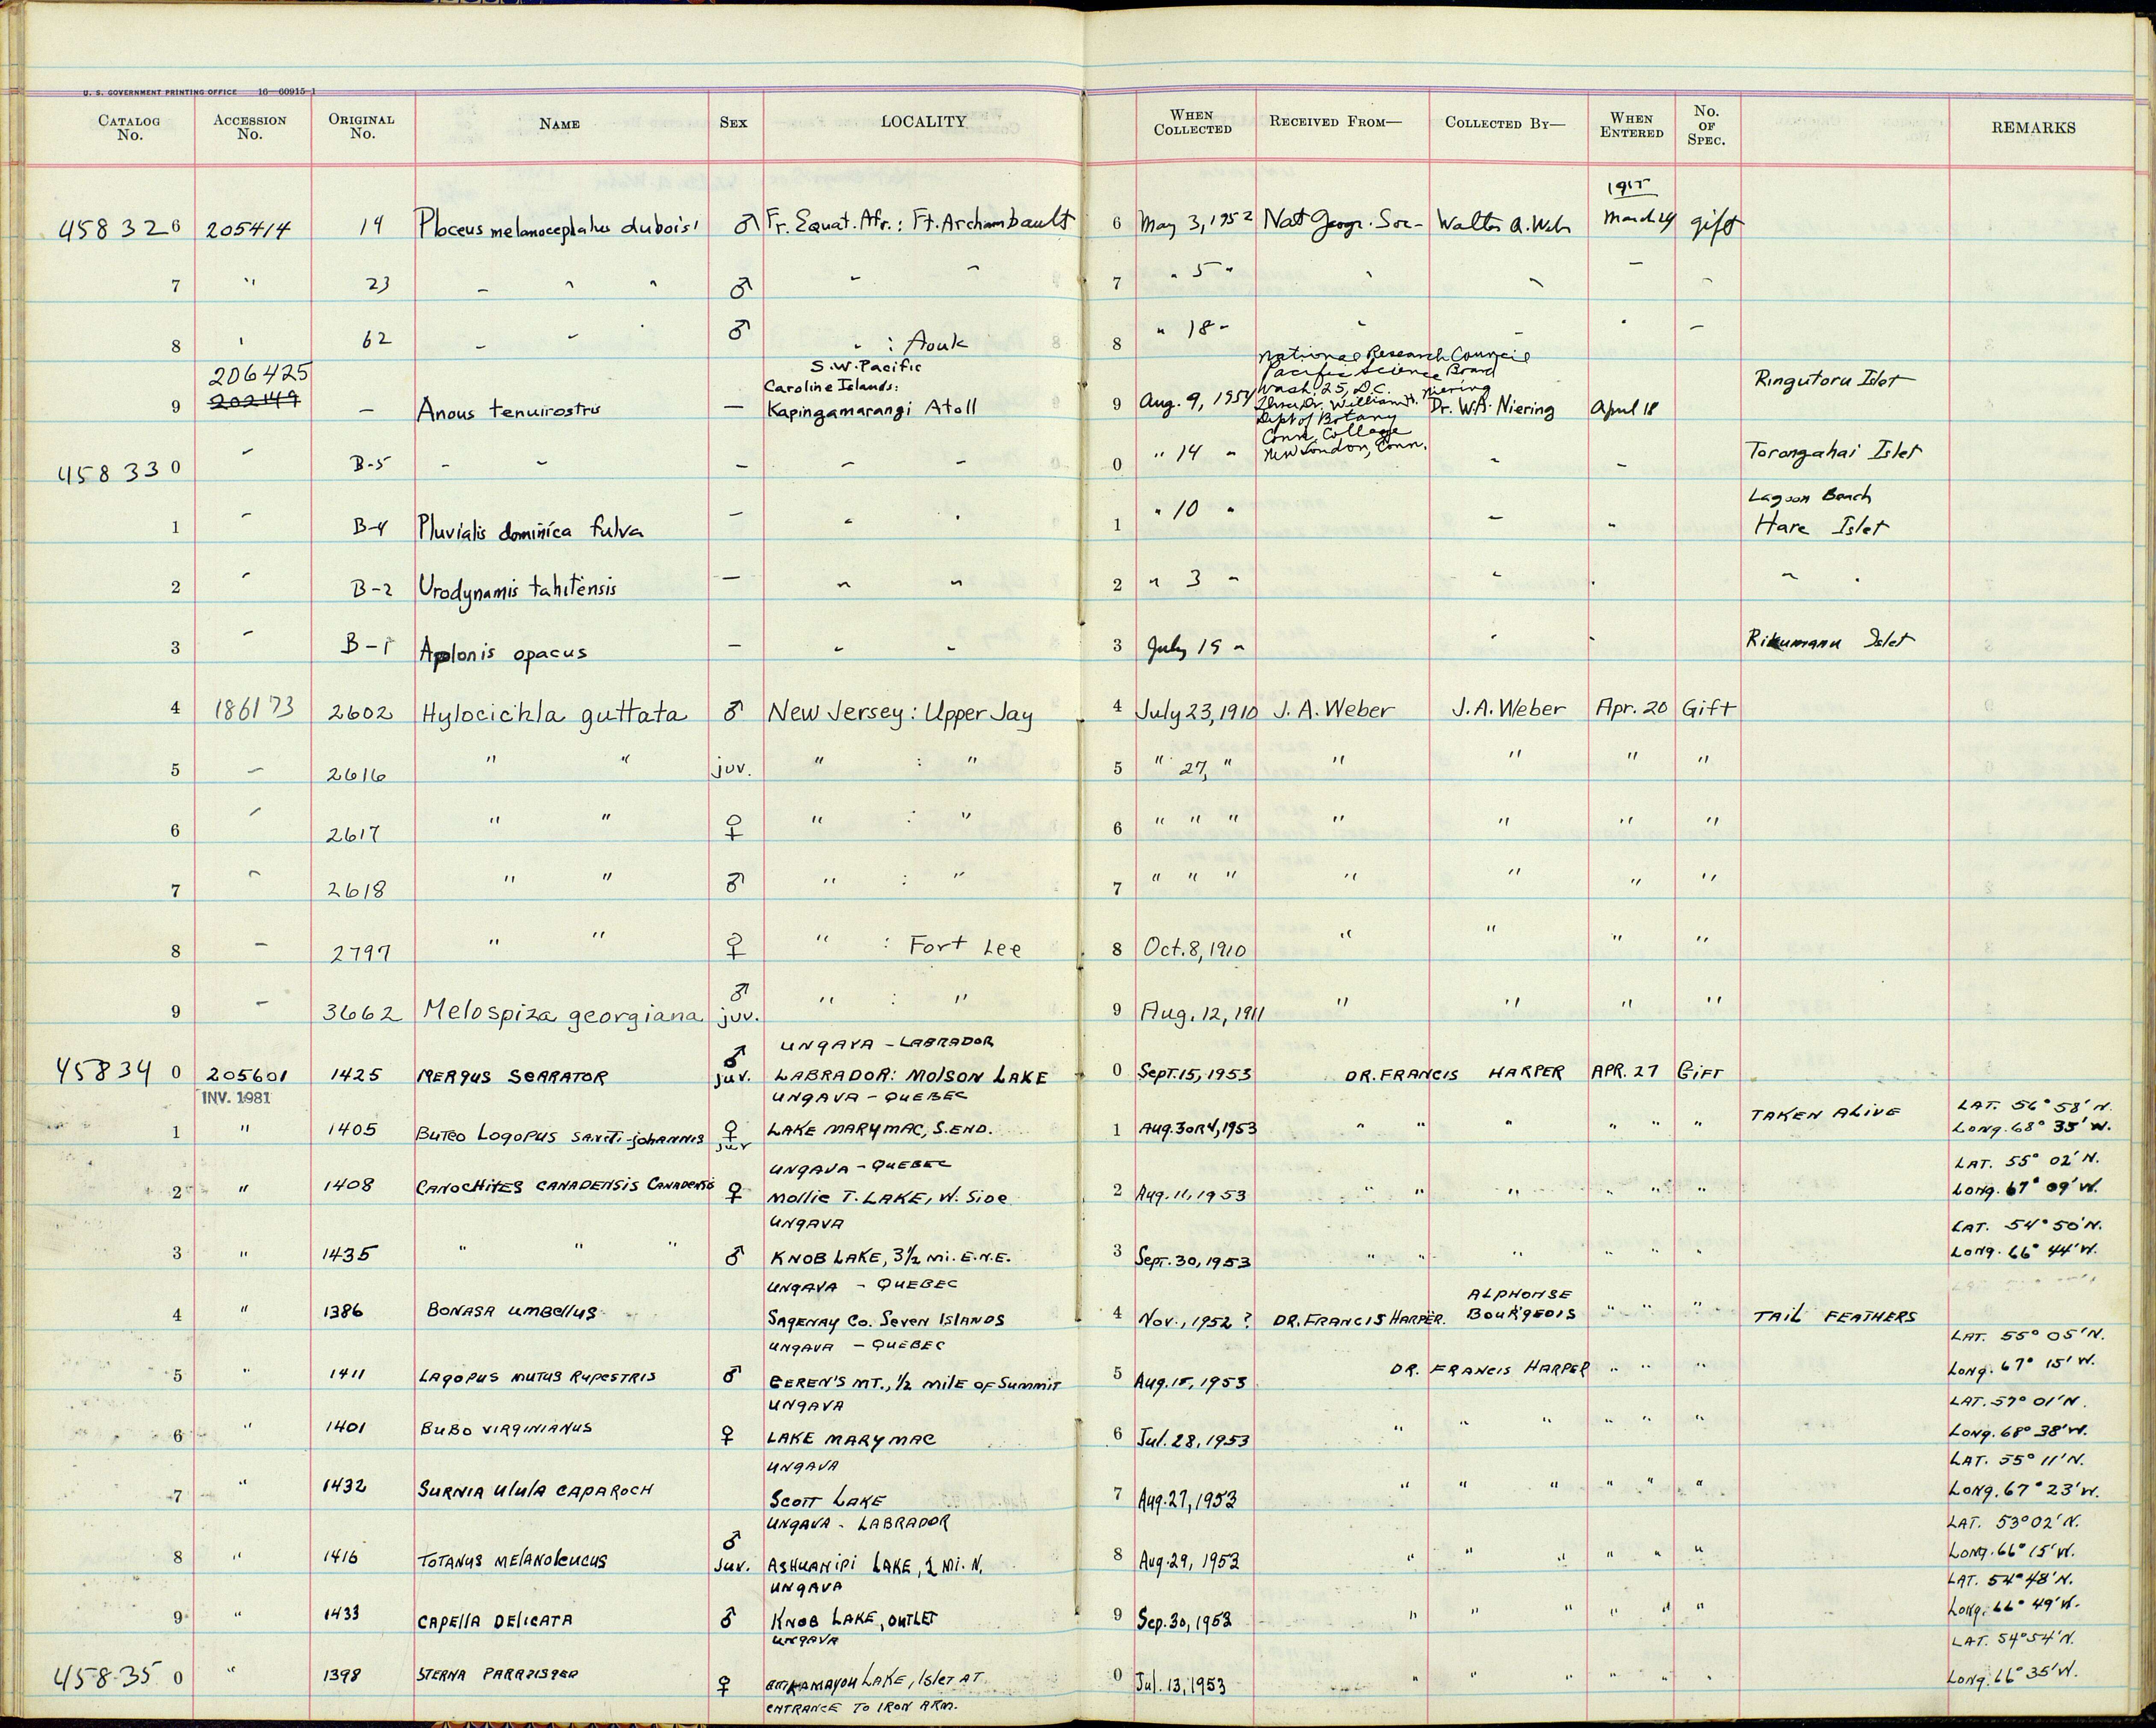 U. S. GOVERNMENT PRINTING OFFICE 16—60915-1
CATALOG No. ACCESSION No. ORIGINAL No. NAME SEX LOCALITY WHEN COLLECTED RECEIVED FROM— COLLECTED BY— WHEN ENTERED No. OF SPEC. REMARKS
1955
458326 205414 19 Ploceus melanocephalus duboisi ♂ Fr. Equat. Afr.: Ft. Archambault 6 May 3, 1952 Nat Geogr. Soc. Walter A. Weber March 24 gift
7 " 23 " " " ♂ " " 7 " 5 " " " " "
8 " 62 " " " ♂ " : Aouk 8 " 18 " " " " "
206425 S.W. Pacific National Research Council
Pacific Science Board
202149 Caroline Islands: Wash. 25, D.C. Ringutoru Islet
9 — Anous tenuirostris — Kapingamarangi Atoll 9 Aug. 9, 1954 Thru Dr. William A. Niering Dr. W.A. Niering April 18
Dept of Botany
Conn. College
New London, Conn.
458330 " B-5 " " — " " 0 " 14 " " " Torongahai Islet
Lagoon Beach
1 " B-4 Pluvialis dominica fulva — " " 1 " 10 " " " Hare Islet
2 " B-2 Urodynamis tahitensis — " " 2 " 3 " " " " "
3 " B-1 Aplonis opacus — " " 3 July 15 " " " Rikumanu Islet
4 186173 2602 Hylocichla guttata ♂ New Jersey: Upper Jay 4 July 23, 1910 J. A. Weber J. A. Weber Apr. 20 Gift
5 " 2616 " " juv. " : " 5 " 27, " " " " "
6 " 2617 " " ♀ " : " 6 " " " " " " "
7 " 2618 " " ♂ " : " 7 " " " " " " "
8 " 2797 " " ♀ " : Fort Lee 8 Oct. 8, 1910 " " " "
9 " 3662 Melospiza georgiana ♂ juv. " : " 9 Aug. 12, 1911 " " " "
UNGAVA - LABRADOR
458340 205601 1425 MERGUS SERRATOR ♂ juv. LABRADOR: MOLSON LAKE 0 SEPT. 15, 1953 DR. FRANCIS HARPER APR. 27 GIFT
INV. 1981 UNGAVA - QUEBEC LAT. 56° 58' N.
1 " 1405 BUTEO LAGOPUS SANCTI-JOHANNIS ♀ juv LAKE MARYMAC, S. END. 1 AUG. 3 OR 4, 1953 " " " " " " TAKEN ALIVE LONG. 68° 35' W.
UNGAVA - QUEBEC LAT. 55° 02' N.
2 " 1408 CANACHITES CANADENSIS CANADENSIS ♀ MOLLIE T. LAKE, W. SIDE 2 AUG. 11, 1953 " " " " " " LONG. 67° 09' W.
UNGAVA LAT. 54° 50' N.
3 " 1435 " " " ♂ KNOB LAKE, 3½ MI. E.N.E. 3 SEPT. 30, 1953 " " " " " " LONG. 66° 44' W.
UNGAVA - QUEBEC ALPHONSE
4 " 1386 BONASA UMBELLUS SAGENAY CO. SEVEN ISLANDS 4 NOV., 1952 ? DR. FRANCIS HARPER. BOURGEOIS " " " TAIL FEATHERS
UNGAVA - QUEBEC LAT. 55° 05' N.
5 " 1411 LAGOPUS MUTUS RUPESTRIS ♂ GEREN'S MT., ½ MILE OF SUMMIT 5 AUG. 15, 1953 DR. FRANCIS HARPER " " " LONG. 67° 15' W.
UNGAVA LAT. 57° 01' N.
6 " 1401 BUBO VIRGINIANUS ♀ LAKE MARYMAC 6 JUL. 28, 1953 " " " " " " LONG. 68° 38' W.
UNGAVA LAT. 55° 11' N.
7 " 1432 SURNIA ULULA CAPAROCH SCOTT LAKE 7 AUG. 27, 1953 " " " " " " LONG. 67° 23' W.
UNGAVA - LABRADOR LAT. 53° 02' N.
8 " 1416 TOTANUS MELANOLEUCUS ♂ JUV. ASHUANIPI LAKE, 1 MI. N. 8 AUG. 29, 1953 " " " " " " LONG. 66° 15' W.
UNGAVA LAT. 54° 48' N.
9 " 1433 CAPELLA DELICATA ♂ KNOB LAKE, OUTLET 9 SEP. 30, 1953 " " " " " " LONG. 66° 49' W.
UNGAVA LAT. 54° 54' N.
458350 " 1398 STERNA ♀ LAKE, ISLET AT 0 JUL. 13, 1953 " " " " " " LONG. 66° 35' W.
ENTRANCE TO IRON ARM.